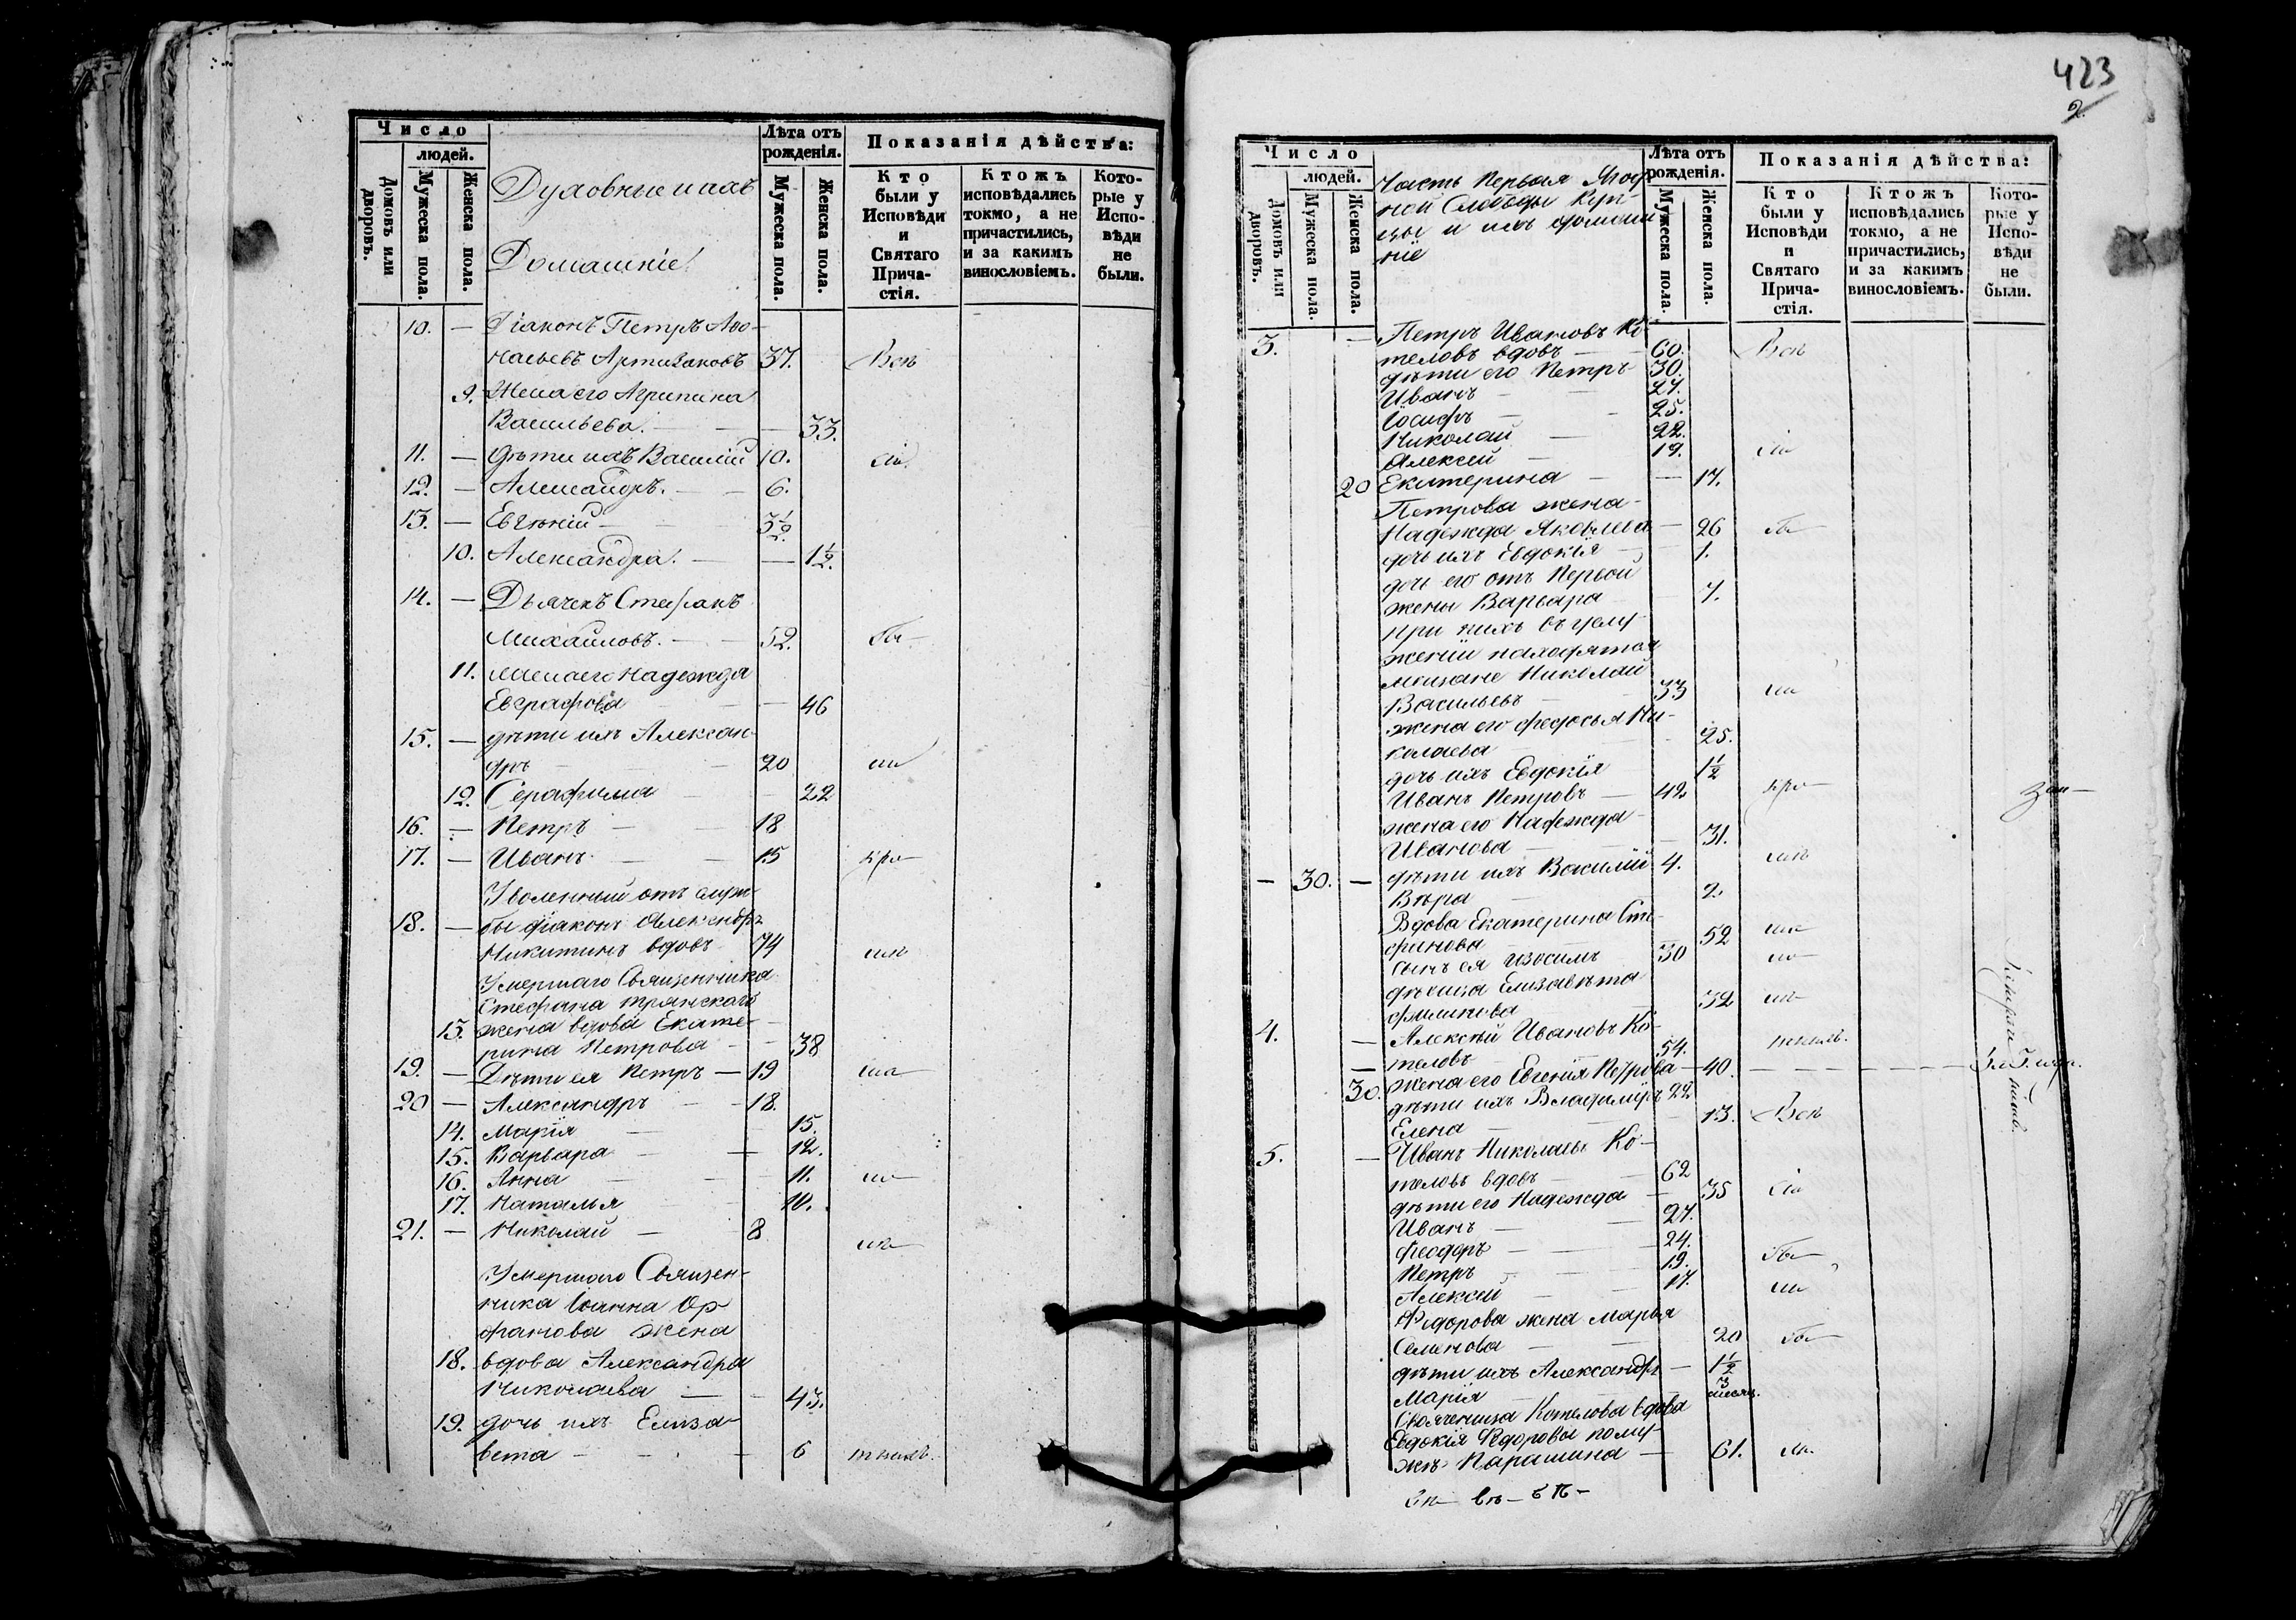 Число
людей.
Домовъ или дворовъ.
Мужеска пола.
Женска пола.
Духовные и ихъ
Домашніе.
Лѣта отъ рожденія.
Мужеска пола.
Женска пола.
Показанія дѣйства:
Кто были у Исповѣди и Святаго Причастія.
Ктожъ исповѣдались токмо, а не причастились, и за какимъ винословіемъ.
Которые у Исповѣди не были.
10. — Діаконъ Петръ Афо-
насьевъ 37. Всѣ
9. Жена его Агрипина
Васильева. — — 33.
11. — Дѣти ихъ Василій 10. сіи
12. — Александръ. — — 6.
13. — Евгеній — 3½.
10. Александра. — — 1½.
14. — Дьячекъ Стефанъ
Михайловъ. — — 52. бы-
11. жена его Надежда
Евграфова — — 46
15. — дѣти ихъ Алексан-
дръ — — 20 ли
12. Серафима — — 22
16. — Петръ — — 18
17. — Иванъ — — 15 при—
Уволенный отъ служ-
18. — бы діаконъ Александръ
Никитинъ вдовъ 74
Умершаго Священника
Стефана
13. жена вдова Екате-
рина Петрова — — 38
19. — Дѣти ея Петръ — 19
20 — Александръ — 18.
14. Марія — 15.
15. Варвара — — 12.
16. Анна — — 11.
17. Наталья — 10.
21. — Николай — 8
Умершаго Священ-
ника Іоанна Ор
фанова жена
18. вдова Александра
Николаева — — 43.
19. дочь ихъ Елиза-
вета — — — 6
423
2
Число
людей.
Домовъ или дворовъ.
Мужеска пола.
Женска пола.
Часть Первая Ямс-
кой Слободы Куп-
цы и ихъ домаш
ніе
Лѣта отъ рожденія.
Мужеска пола.
Женска пола.
Показанія дѣйства:
Кто были у Исповѣди и Святаго Причастія.
Ктожъ исповѣдались токмо, а не причастились, и за какимъ винословіемъ.
Которые у Исповѣди не были.
3. — Петръ Ивановъ Ко-
теловъ вдовъ — 60. Всѣ
дѣти его Петръ 30.
Иванъ — 27.
Іосифъ — — 25.
Николай — 22.
Алексей — 19. сіи
20 Екатерина — — 17.
Петрова жена —
Надежда Яковлева — 26 бы—
дочь ихъ Евдокія — 1.
дочь его отъ Первой
жены Варвара — 7.
при нихъ въ услу-
женіи находятся
мещане Николай
Васильевъ — 33 ли
жена его Федосья Ни-
колаева — 25.
дочь ихъ Евдокія 1½
Иванъ Петровъ — 42 при—
жена его Надежда —
Иванова — — 31.
— 30. — дѣти ихъ Василій 4.
Вѣра — 2.
Вдова Екатерина Сте-
финова — 52
сынъ ея 30
дѣвица Елизавѣта
Филипова — 32
4. — Алексѣй Ивановъ Ко-
теловъ — 54.
30. жена его Евгенія Петрова — 40. — — — — —
дѣти ихъ Владиміръ 22
Елена — — 13. Всѣ
5. — Иванъ Николаевъ Ко-
теловъ вдовъ — 62
дѣти его Надежда — 35 сіи
Иванъ — — 27.
Феодоръ — — 24.
Петръ — — 19. бы—
Алексей — — 17. ли
Федорова жена Марья
Семенова — — 20 бы—
дѣти ихъ Александръ — 1½
Марія — — 3 месяц.
Свояченица Котелова вдова
Евдокія Федорова по му-
жѣ Парашина — 61.